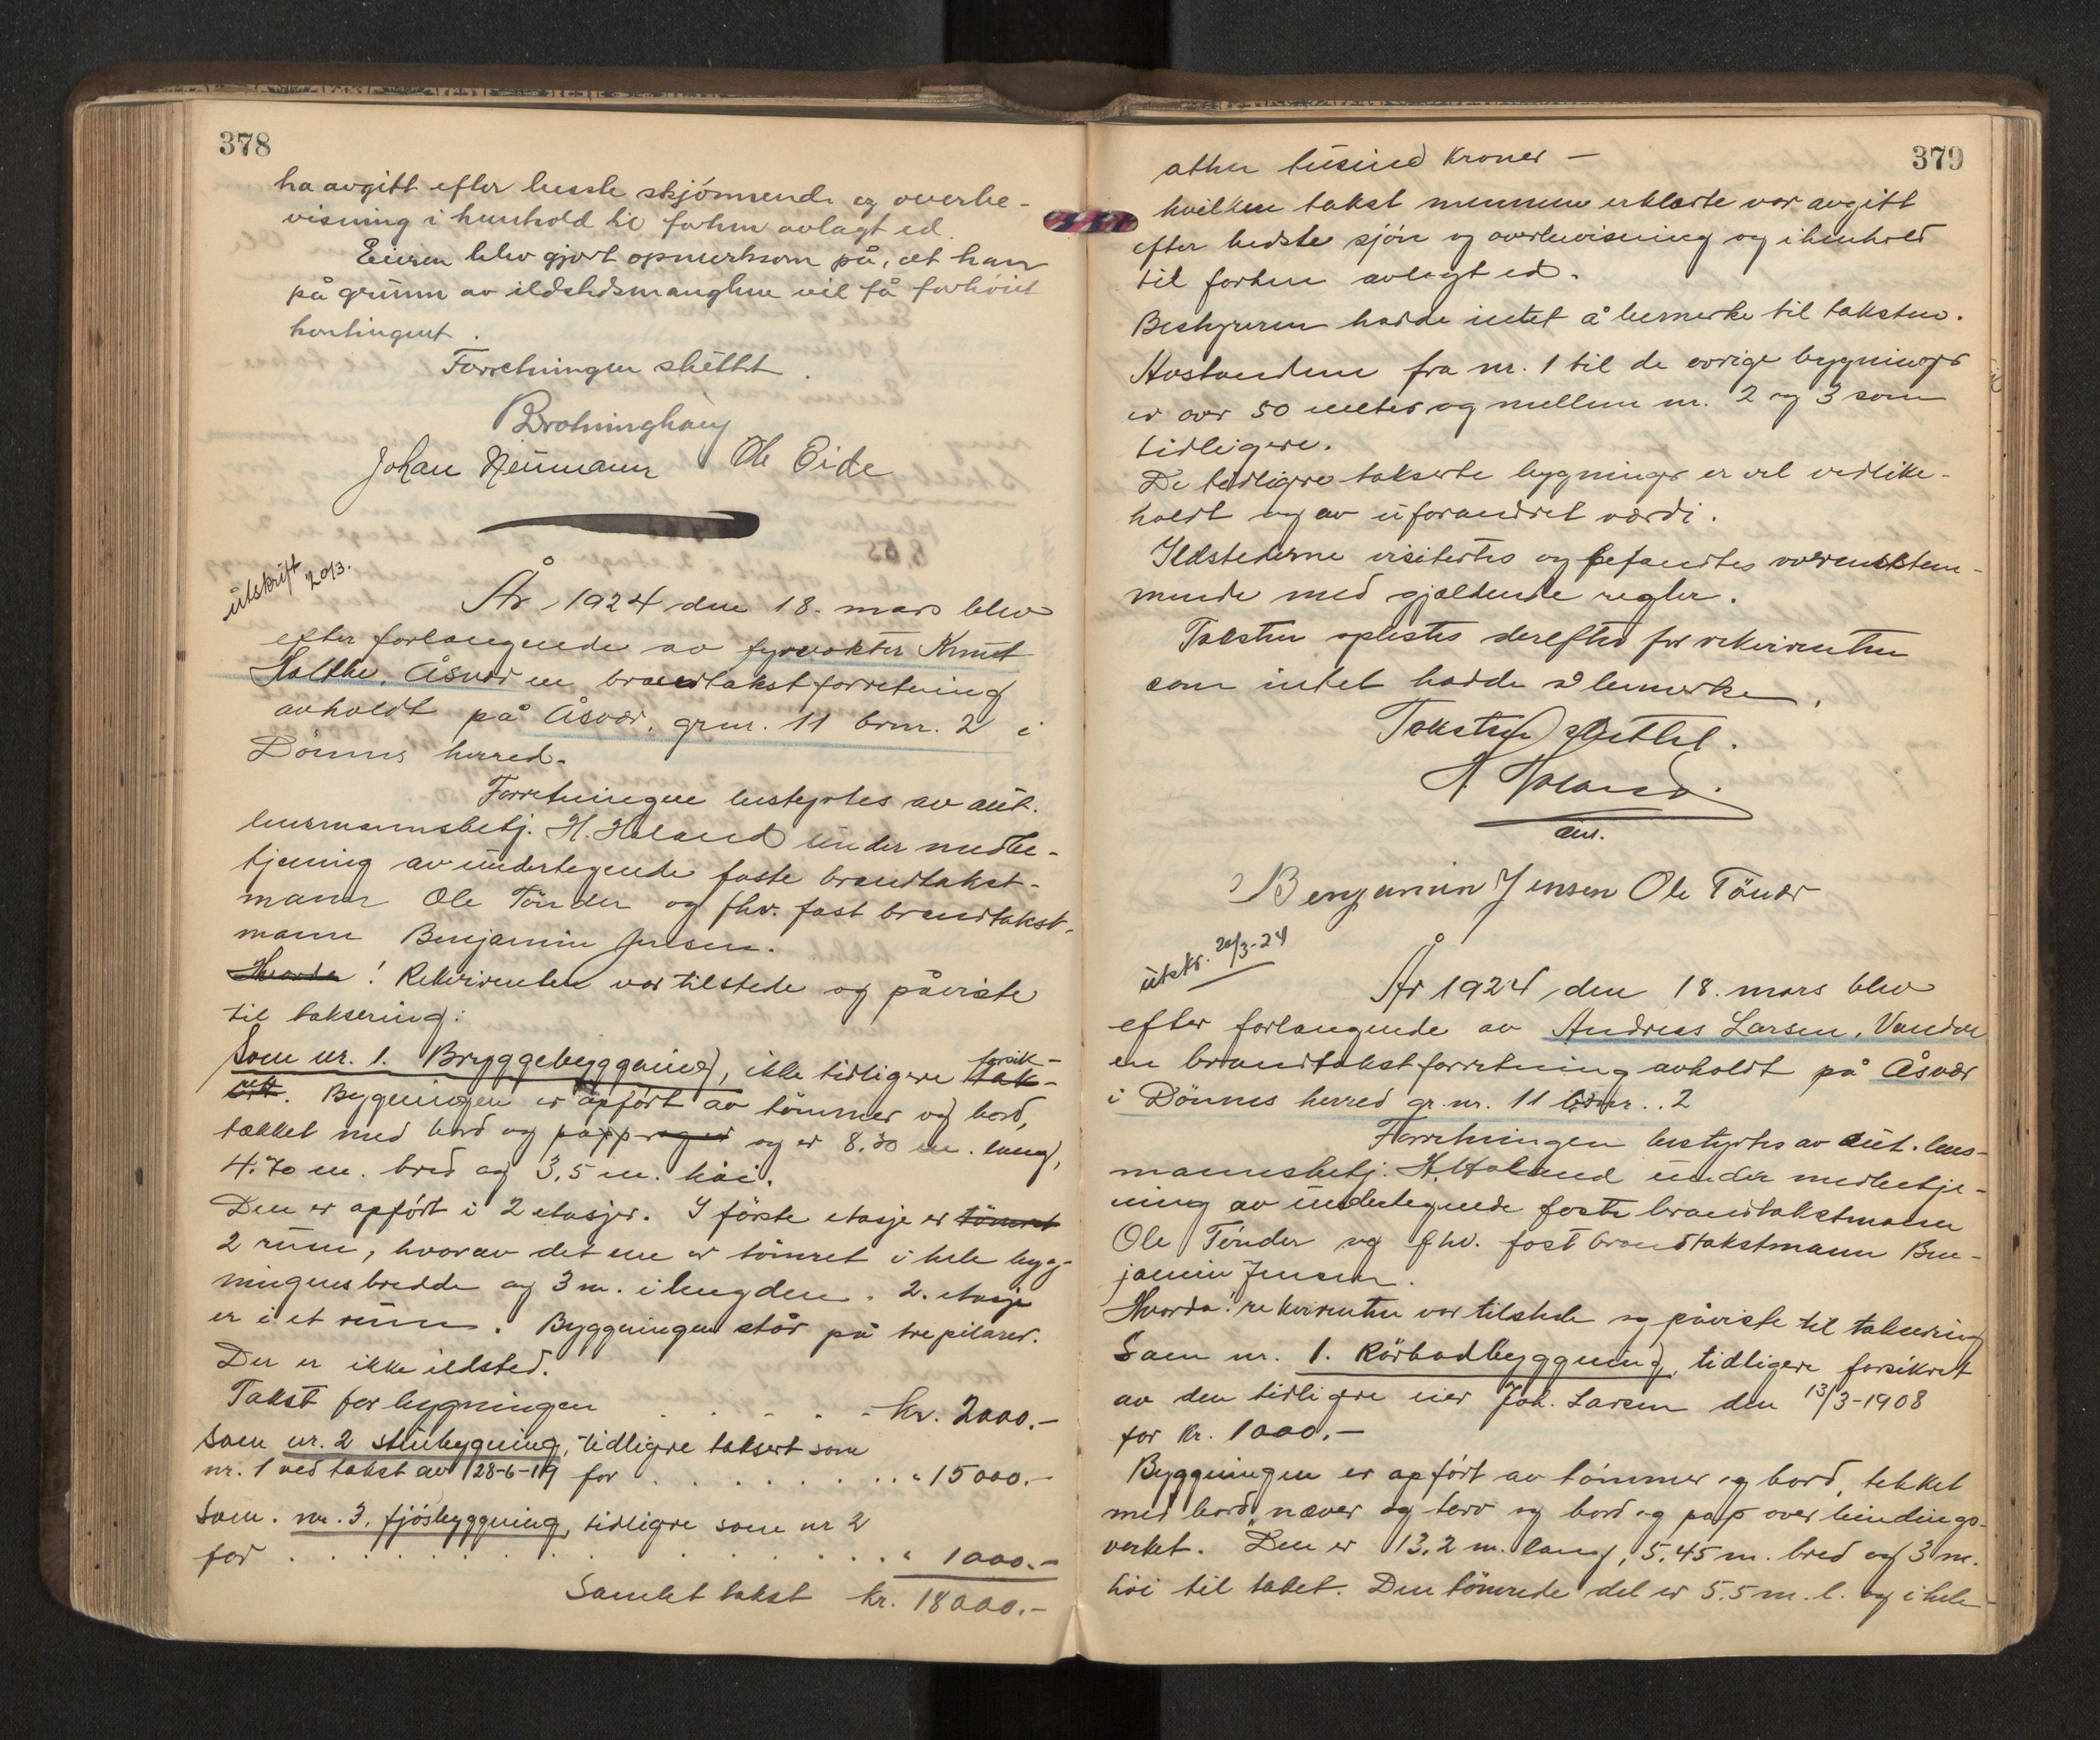 378
ha avgitt efter beste skjönnende og overbe-
visning i henhold til forhen avlagt ed.
Eieren blev gjort opmerksom på, at han
på grunn av ildstedsmanglene vil få forhöiet
kontingent.
Forretningen sluttet.
Johan Neumann Ole Eide
utskrift 20/3.
År 1924 den 18. mars blev
efter forlangende av fyrvokter Knut
Holthe, Åsvær en brandtakstforretning
avholdt på Åsvær, grnr. 11 brnr. 2 i
Dönnes herred.
Forretningen bestyrtes av aut.
lensmannsbetj. H. Holand under medbe-
tjening av undertegnede faste brandtakst-
mann Ole Tönder og fhv. fast brandtakst-
mann Benjamin Jensen.
Hvorda! Rekvirenten var tilstede og påviste
til taksering:
Som nr. 1. Bryggebyggning, ikke tidligere tak- forsik-
ret. Bygningen er opfört av tömmer og bord,
tækket med bord og papp og er 8.30 m. lang,
4.70 m. bred og 3,5 m. höi.
Den er opfört i 2 etasjer. I förste etasje er tömret
2 rum, hvorav det ene er tömret i hele bygg-
ningens bredde og 3 m. i lengden. 2. etasje
er i et rum. Byggningen står på trepilarer.
Der er ikke ildsted.
Takst for bygningen . . . . - kr. 2000.-
Som nr. 2 stubygning, tidligre taksert som
nr. 1 ved takst av 28-6-19 for . . . . . . . . " 15000.-
Som. nr. 3. fjösbyggning, tidligre som nr 2
for . . . . . . . . . . . . . . " 1000.-
Samlet takst kr. 18000.-
379
atten tusind kroner -
hvilken takst mennene erklærte var avgitt
efter bedste sjön og overbevisning og i henhold
til forhen avlagt ed.
Bestyreren hadde intet å bemerke til taksten.
Avstandene fra nr. 1 til de övrige bygninger
er over 50 meter og mellem nr. 2 og 3 som
tidligere.
De tidligere takserte bygninger er vel vedlike-
holdt og av uforandret værdi.
Ildstederne visitertes og befandtes overensstem-
mende med gjældende regler.
Taksten oplestes derefter for rekvirenten
som intet hadde å bemerke.
Taksten sluttet.
H. Holand.
aut.
Benjamin Jensen Ole Tönder
utskr. 20/3-24
År 1924 den 18. mars blev
efter forlangende av Andreas Larsen, Vandve
en brandtakstforretning avholdt på Åsvær
i Dönnes herred gr. nr. 11 brnr. 2
Forretningen bestyrtes av aut. lens-
mannsbetj. H. Holand under medbetje-
ning av undertegnede faste brandtakstmann
Ole Tönder og fhv. fast brandtakstmann Ben-
jamin Jensen.
Hvorda! rekvirenten var tilstede og påviste til taksering
Som nr. 1. Rörbodbyggning, tidligere forsikret
av den tidligre eier Joh. Larsen den 13/3-1908
for kr. 1000.-
Byggningen er opfört av tömmer og bord, tekket
med bord, næver og torv og bord og pap over bindings-
verket. Den er 13,2 m. lang, 5,45 m. bred og 3 m.
höi til taket. Den tömrede del er 5.5 m. l. og i hele